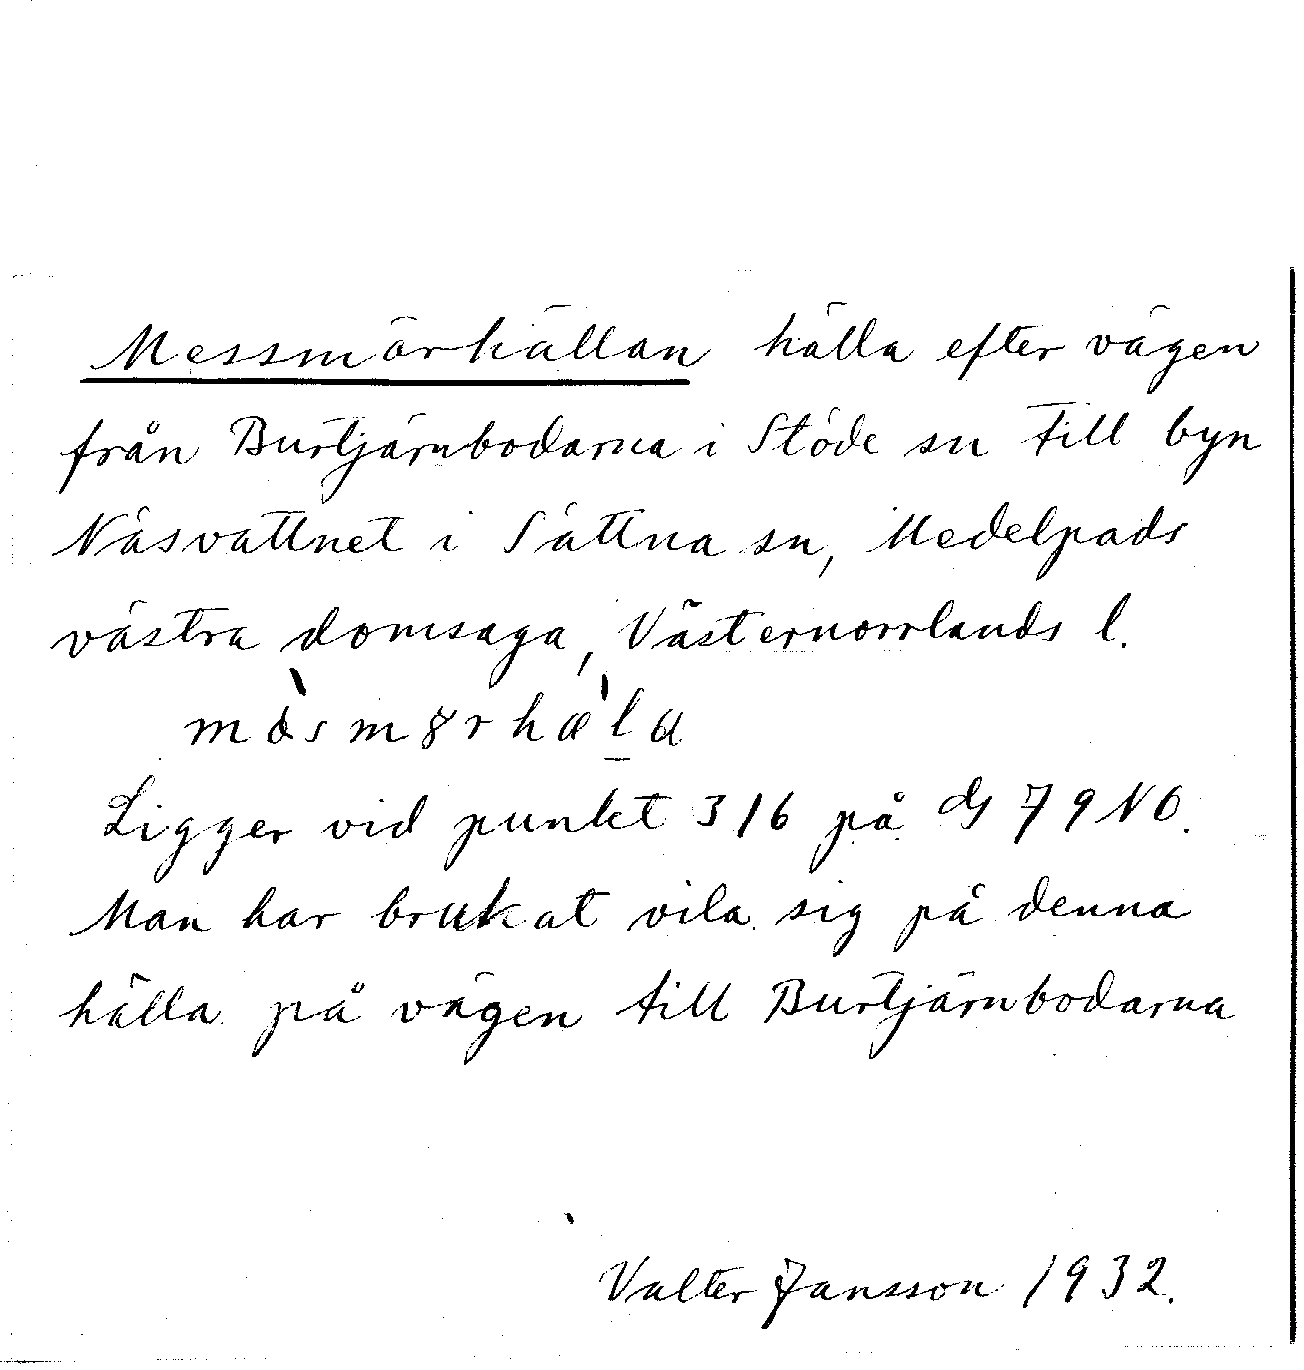 Messmörhällan hälla efter vägen
från Burtjärnbodarna i Stöde sn till byn
Näsvattnet i Sättna sn, Medelpads
västra domsaga, Västernorrlands l.
Ligger vid punkt 316 på 79 NO.
Man har brukat vila sig på denna
hälla på vägen till Burtjärnbodarna
Valter Jansson 1932.